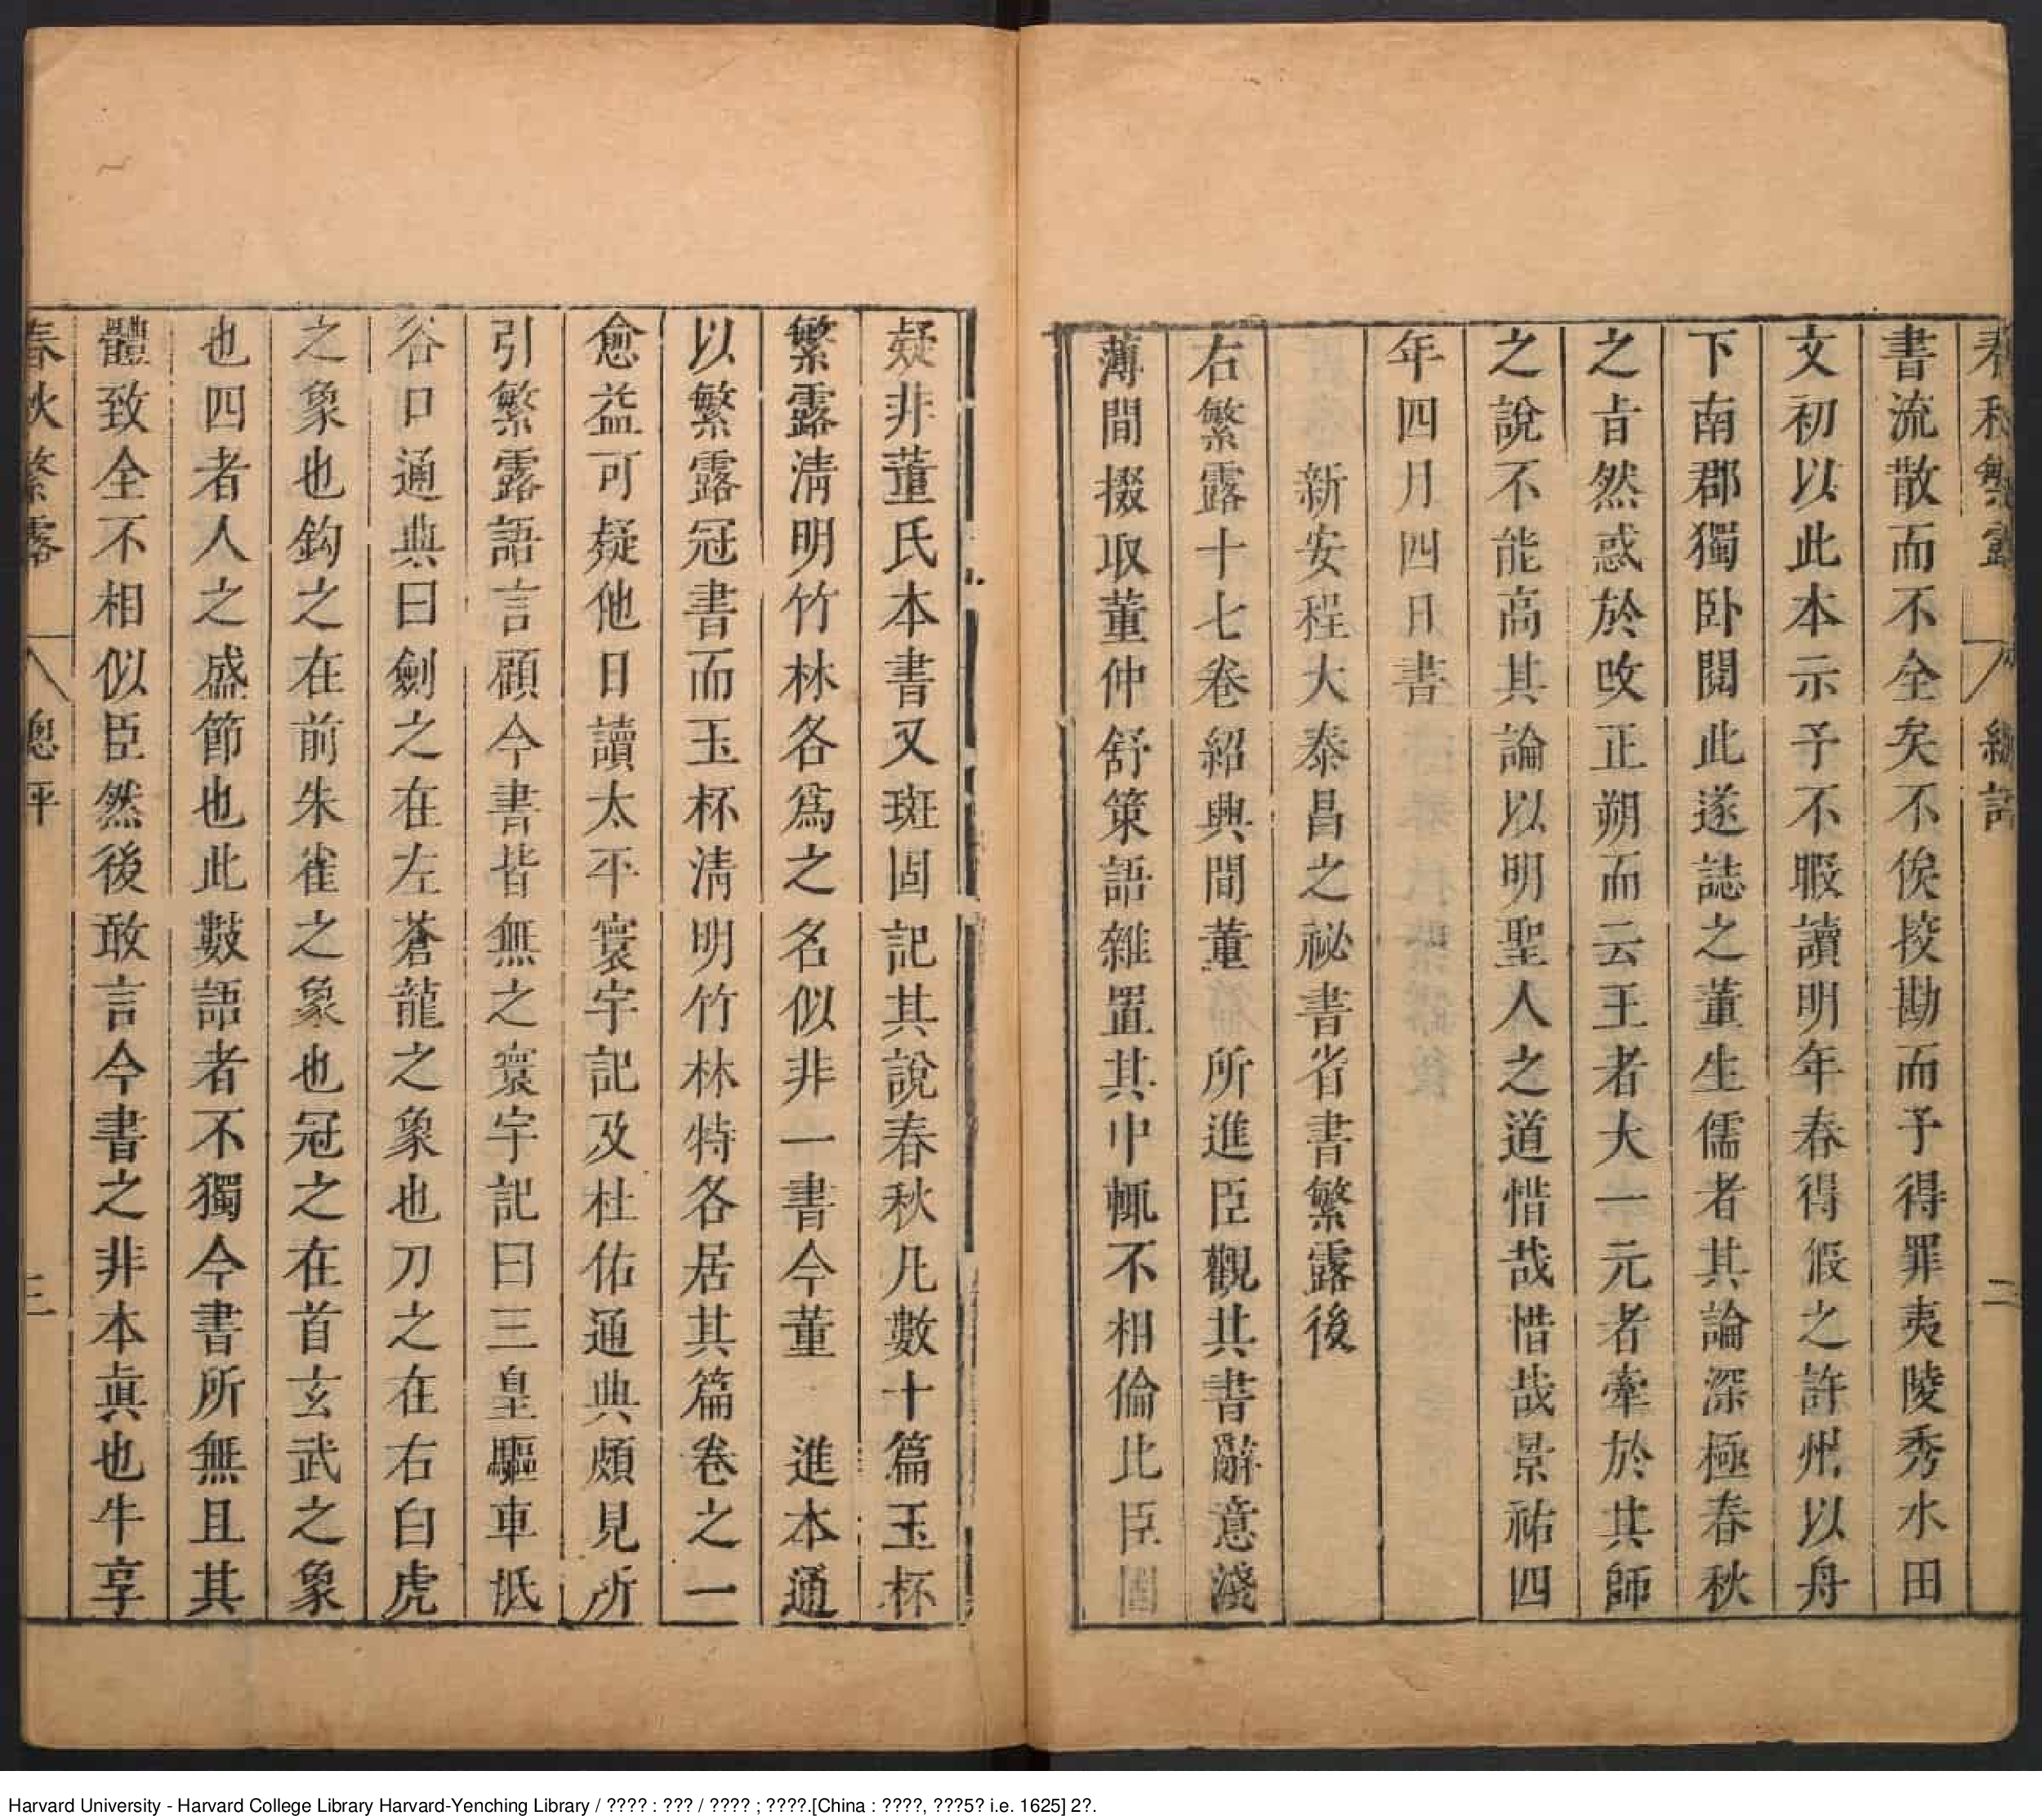 春秋繁露 總評 二
書流散而不全矣不俟挍勘而予得罪夷陵秀水田
文初以此本示予不暇讀明年春得假之許州以舟
下南郡獨卧閱此遂誌之董生儒者其論深極春秋
之旨然惑於攺正朔而云王者大一元者牽於其師
之說不能高其論以明聖人之道惜哉惜哉景祐四
年四月四日書
新安程大泰昌之祕書省書繁露後
右繁露十七卷紹興間董 所進臣觀其書辭意淺
薄間掇取董仲舒策語雜置其中輒不相倫比臣固
疑非董氏本書又班固記其說春秋凡數十篇玉杯
繁露淸明竹林各爲之名似非一書今董 進本通
以繁露冠書而玉杯淸明竹林特各居其篇卷之一
愈益可疑他日讀太平寰宇記及杜佑通典頗見所
引繁露語言顧今書皆無之寰宇記曰三皇驅車抵
谷口通典曰劍之在左蒼龍之象也刀之在右白虎
之象也鈎之在前朱雀之象也冠之在首玄武之象
也四者人之盛節也此數語者不獨今書所無且其
體致全不相似臣然後敢言今書之非本眞也牛享
春秋繁露 總評 三
Harvard University - Harvard College Library Harvard-Yenching Library / ???? : ??? / ???? ; ????.[China : ????, ???5? i.e. 1625] 2?.